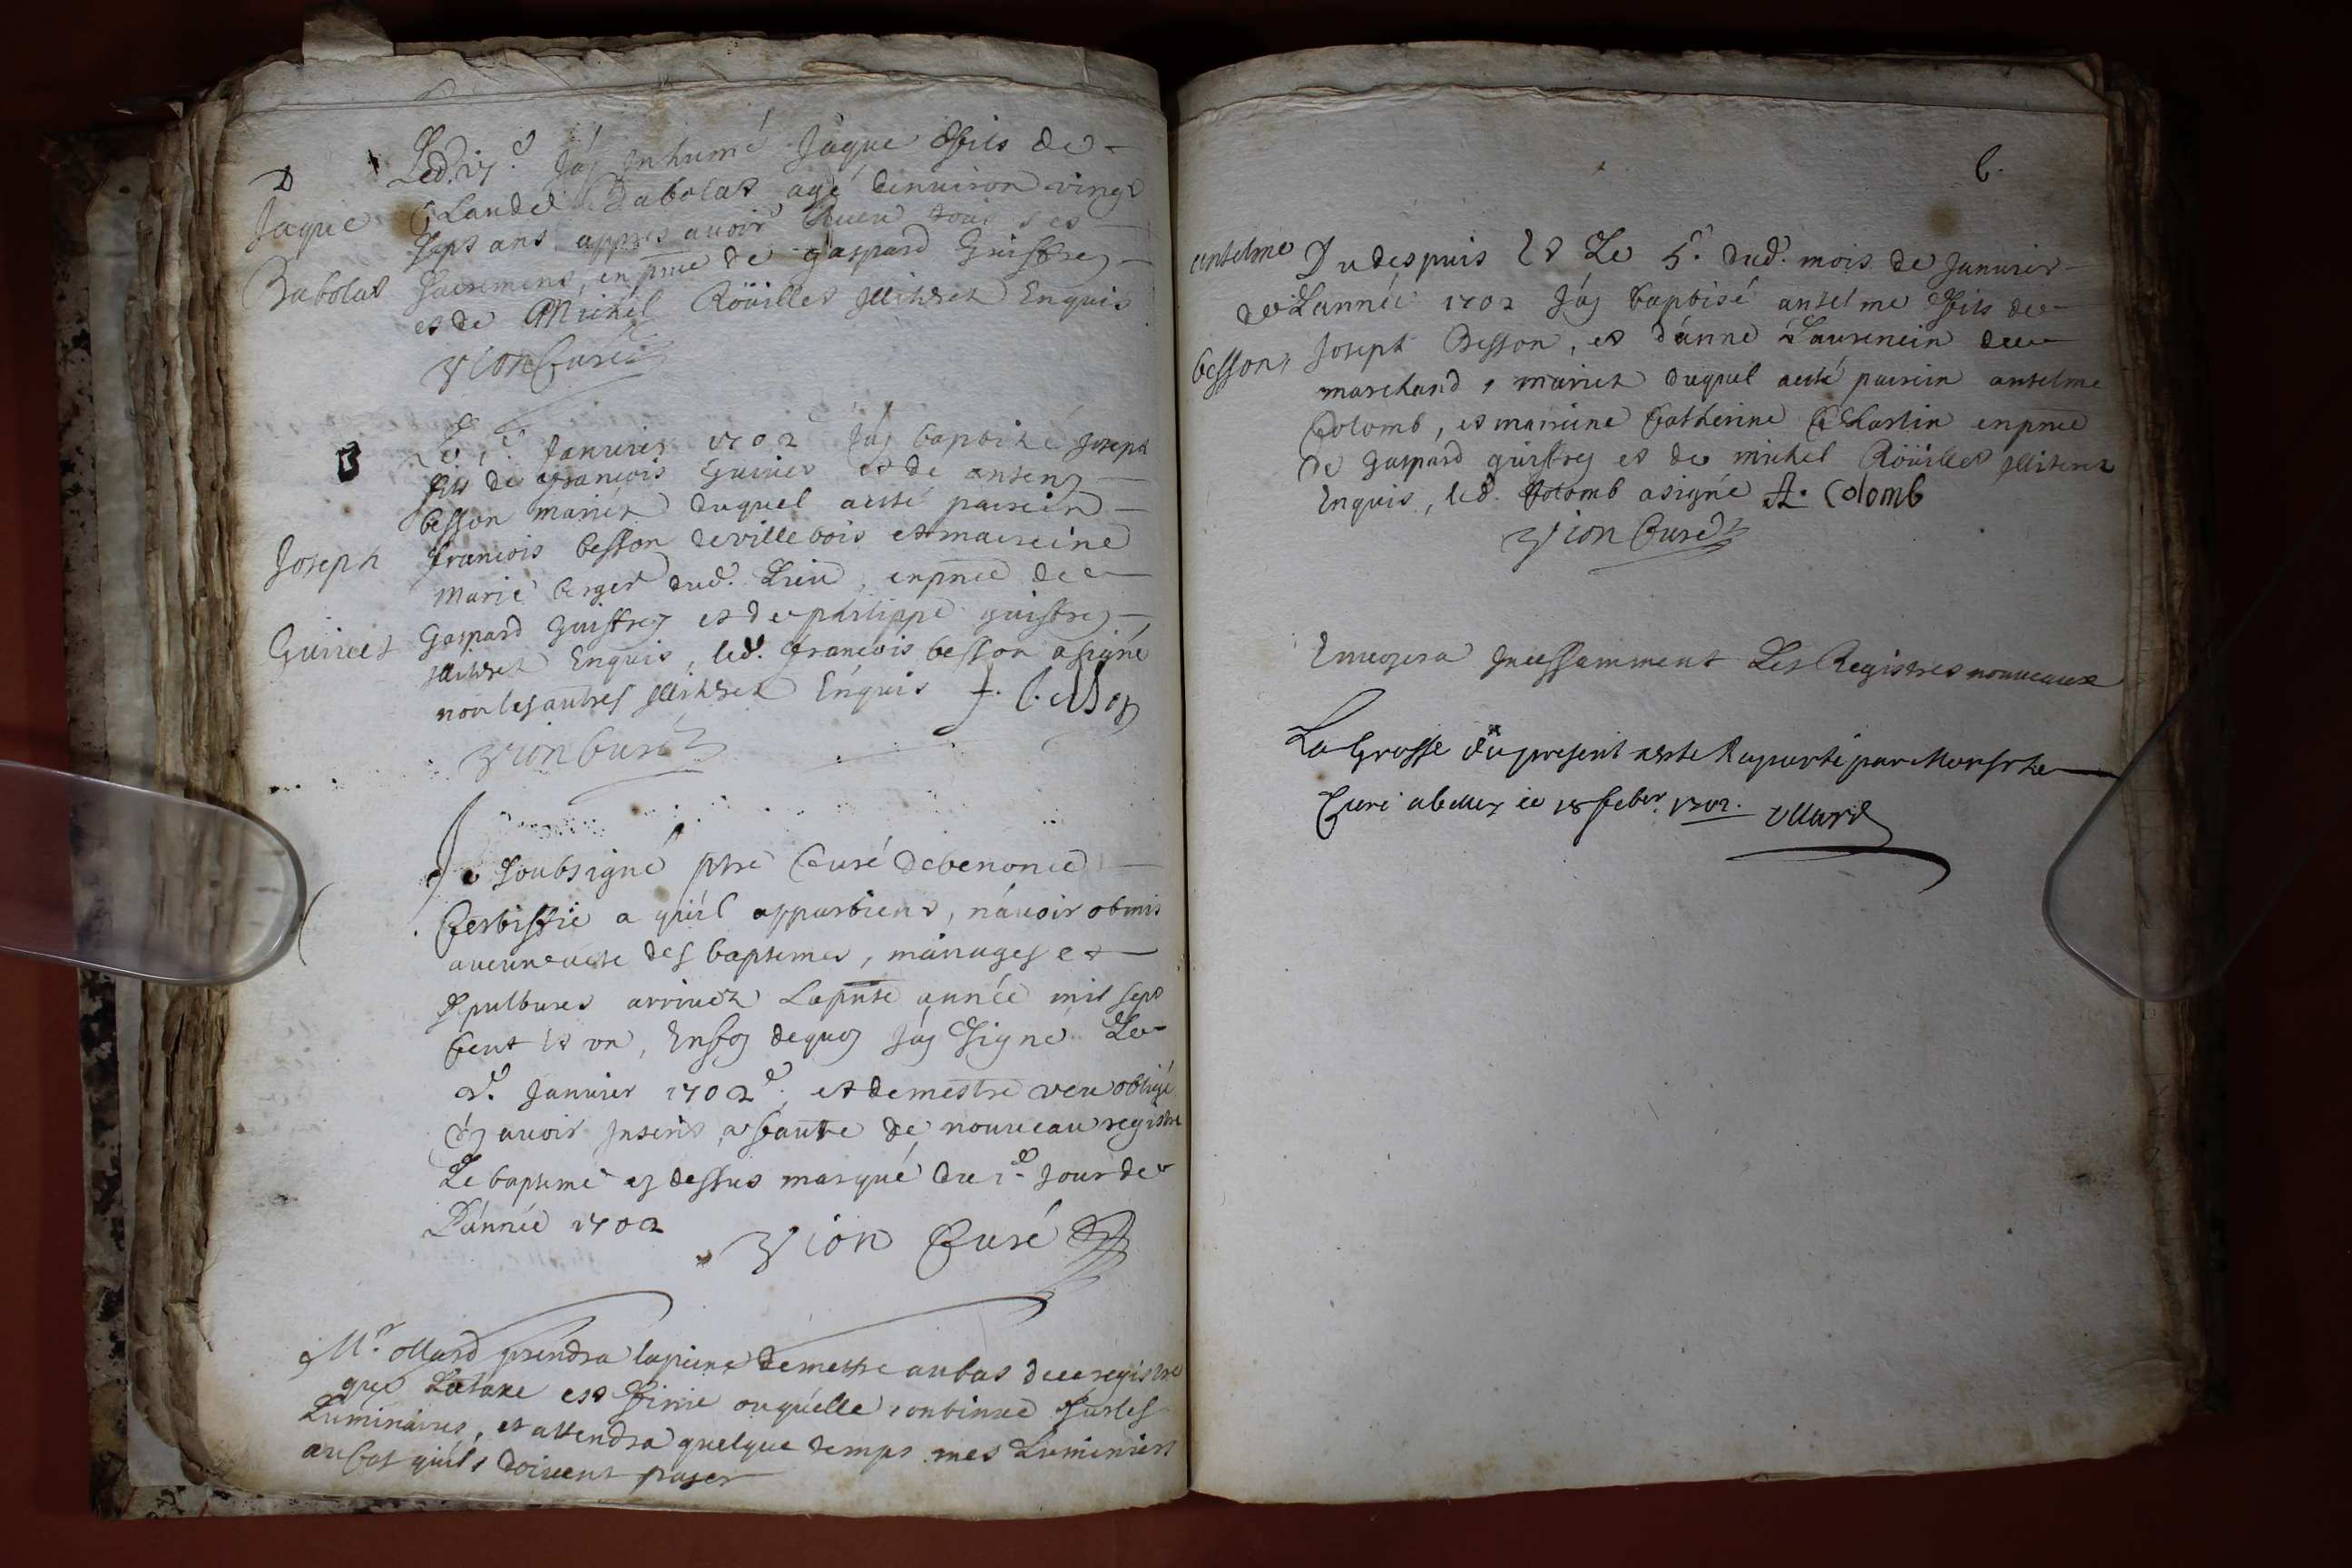 D
Jaque
Babolat
Led. jáy Inhumé Jaque ffils de
Claude Babolat agé denuiron vingt
sept ans appres auoir receu tous ses
sacremens, en pnce de gaspard Guistrey
et de Michel Röüillet illitérez Enquis
Vion Curé
B
Joseph
Guinet
Le 1.e Januier 1702 jáy baptizé Joseph
fils de francois Guinet et de anteny
besson mariéz duquel aesté parein
francois besson devillebois et mareine
Marie berger dud. Lieu, enpnce de
Gaspard guistrey et de philippe guistrey
illitérez Enquis, led. francois besson asigné
non les autres illitérez Enquis f. besson
Vion Curé
Je soubsigné ptre Curé debenonce
Certiffie a quíl appartient, náuoir obmis
aucun acte des baptemes, mariages et
sepultures arriuéz Lapnte année mil sept
Cent et vn, Enfoy dequoy jáy signé Le
2.e Januier 1702, et demestre veu obligé
dy auoir Inseré, afaute de nouveau registre
Le bapteme cy dessus marqué du 1.e Jour de
Lánnée 1702
Vion Curé
Mr. ollard prendra lapeine demettre aubas deceregistre
que Lataxe est ffinie ouquélle continue surles
Luminaires, et attendra quelque temps mes Luminiers
aucas quíls doivent payer
6.
anselme
besson
Dudespuis et Le 5.e dud. mois de Januier
de Lannée 1702 jáy baptisé anselme ffils de
Joseph Besson, et dánne Laurencin de
marchand, mariéz duquel aesté parein anselme
Colomb, et mareine Catherine Charlin enpnce
de gaspard guistrey et de michel Röüillet illiterez
Enquis, led. Colomb asigné A. Colomb
Vion Curé
Enuoyera Incessamment Les Registres nouueaux
La Grosse du present aesté Raporté par Monsr le
Curé abelley ce 18 febvr. 1702. ollard